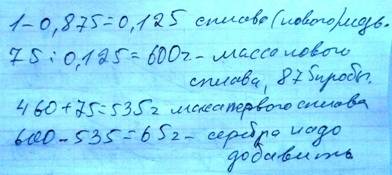 1-0,875=0,125 сплава (нового) медь.
75:0,125=600г.- масса нового
сплава, 875 пробы.
460+75=535г масса первого сплава
600-535=65г- серебра надо
добавить